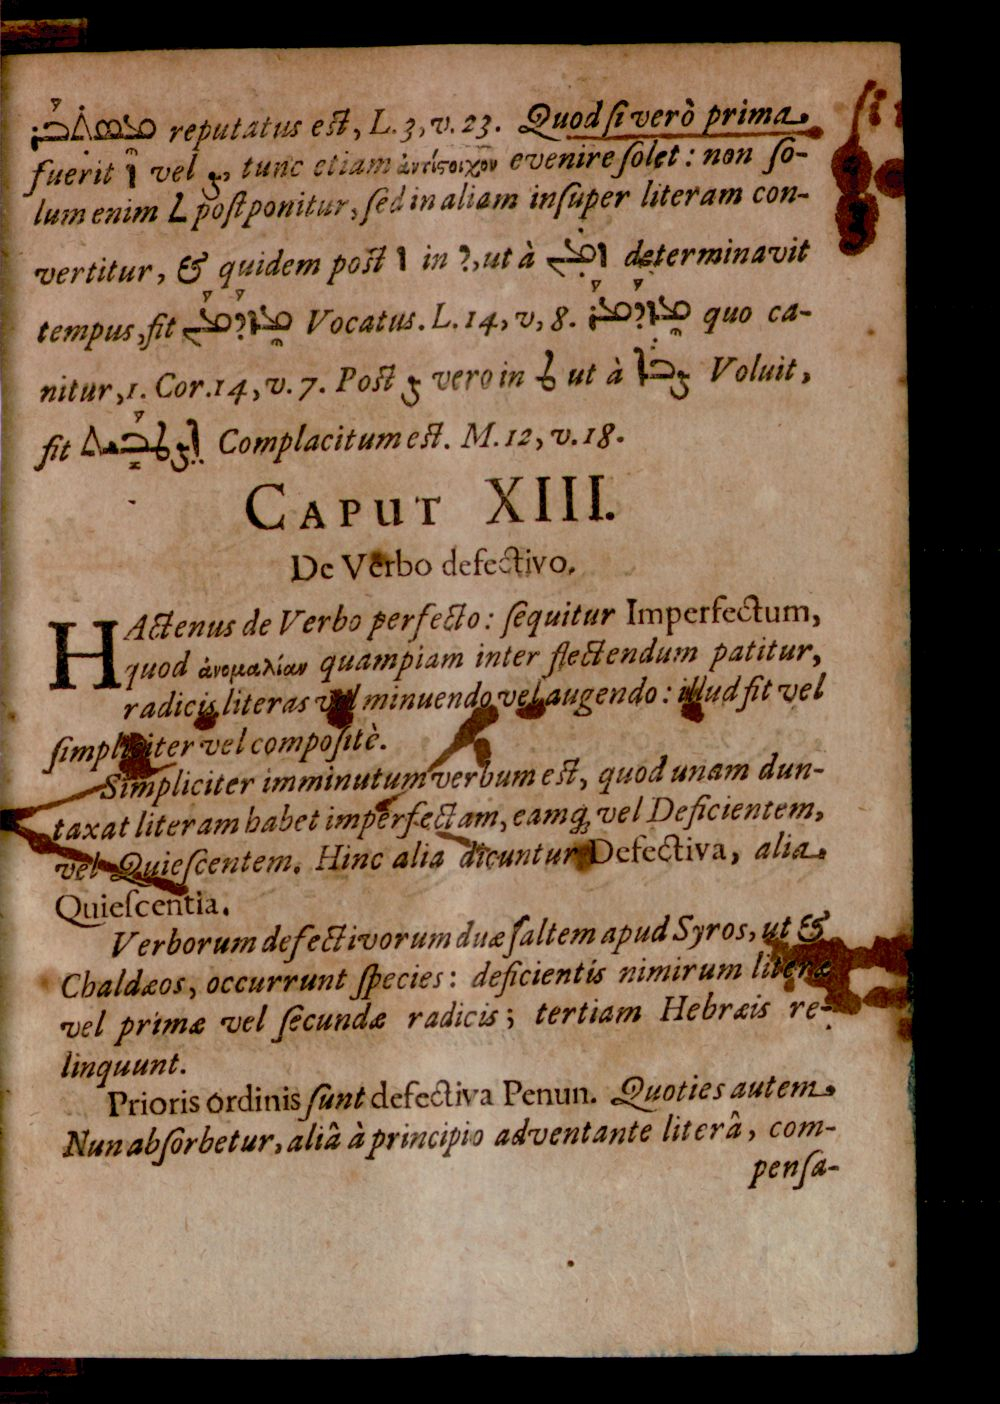 ܡܣܬܒܪ reputatus est, L. 3, v. 23. Quod ſi verò prima
fuerit ܙ vel ܨ, tunc etiam ἀντίστοιχον evenire ſolet: non ſo-
lum enim ܬ poſtponitur, ſed in aliam inſuper literam con-
vertitur, & quidem poſt ܙ in ܕ, ut à ܙܡܢ determinavit
tempus, fit ܡܙܕܡܢ Vocatus. L. 14, v, 8. ܡܙܕܡܪ quo ca-
nitur, 1. Cor. 14, v. 7. Poſt ܨ vero in ܛ ut à ܨܒܐ Voluit,
fit ܐܨܛܒܝܬ Complacitum eſt. M. 12, v. 18.
CAPUT XIII.
De Verbo defectivo.
HActenus de Verbo perfecto: ſequitur Imperfectum,
quod ἀνομαλίαν quampiam inter flectendum patitur,
radicis literas vel minuendo vel augendo: illud fit vel
ſimpliciter vel compoſitè.
Simpliciter imminutum verbum eſt, quod unam dun-
taxat literam habet imperfectam, eamq; vel Deficientem,
vel Quieſcentem. Hinc alia dicuntur Defectiva, alia
Quieſcentia.
Verborum defectivorum duæ ſaltem apud Syros, ut &
Chaldæos, occurrunt ſpecies: deficientis nimirum literæ
vel primæ vel ſecundæ radicis; tertiam Hebræis re-
linquunt.
Prioris ordinis ſunt defectiva Penun. Quoties autem
Nun abſorbetur, aliâ à principio adventante literâ, com-
penſa-